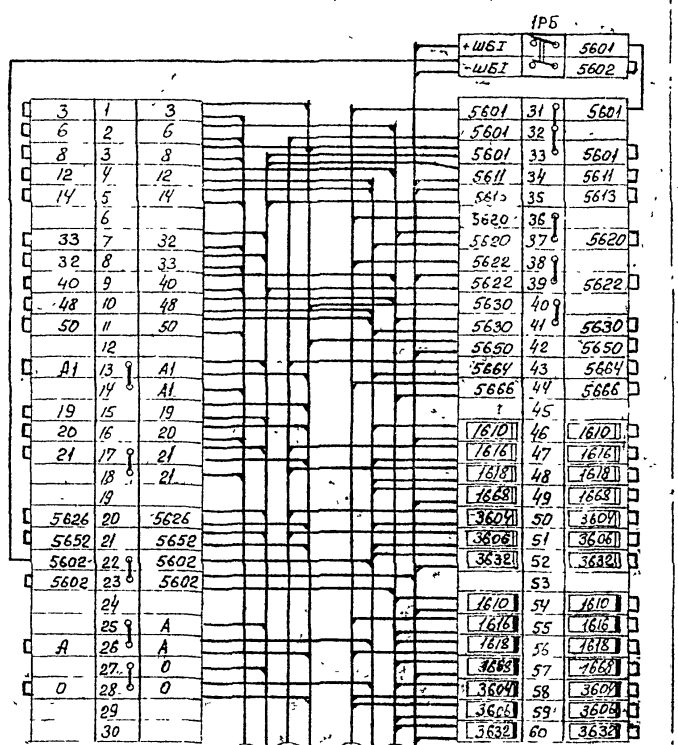 1РБ
+ШБI 5601
-ШБI 5602
3 1 3
6 2 6
8 3 8
12 4 12
14 5 14
6
33 7 32
32 8 33
40 9 40
48 10 48
50 11 50
12
А1 13 А1
14 А1
19 15 19
20 16 20
21 17 21
18 21
19
5626 20 5626
5652 21 5652
5602 22 5602
5602 23 5602
24
25 А
А 26 А
27 0
0 28 0
29
30
5601 31 5601
5601 32
5601 33 5601
5611 34 5611
35 5613
5620 36
5620 37 5620
5622 38
5622 39 5622
5630 40
5630 41 5630
5650 42 5650
5664 43 5664
5666 44 5666
45
1610 46 1610
1616 47 1616
1618 48 1618
1668 49 1668
3604 50 3604
3606 51 3606
3632 52 3632
53
1610 54 1610
1616 55 1616
1618 56 1618
1668 57 1668
3604 58 3604
3606 59 3606
3632 60 3632